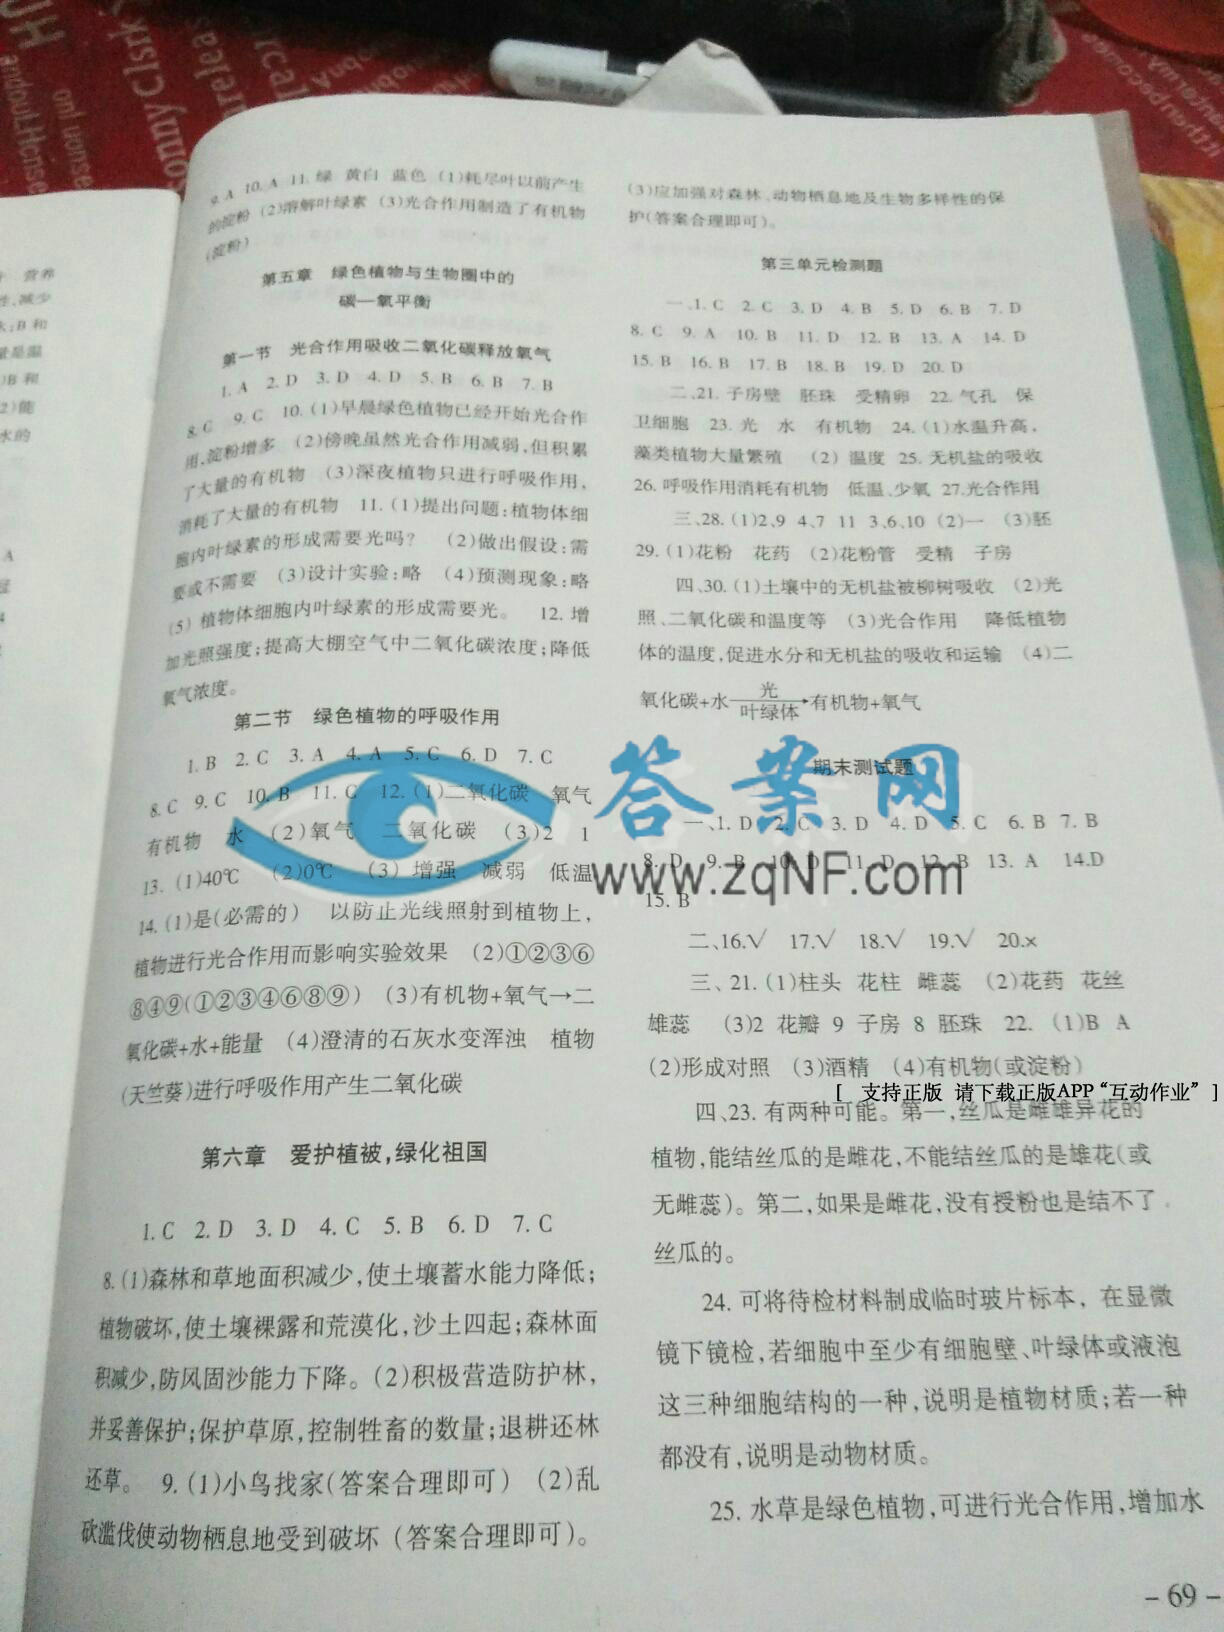 9. A 10. A 11. 绿 黄白 蓝色 (1)耗尽叶以前产生
的淀粉 (2)溶解叶绿素 (3)光合作用制造了有机物
(淀粉)
第五章 绿色植物与生物圈中的
碳—氧平衡
第一节 光合作用吸收二氧化碳释放氧气
1. A 2. D 3. D 4. D 5. B 6. B 7. B
8. C 9. C 10. (1)早晨绿色植物已经开始光合作
用,淀粉增多 (2)傍晚虽然光合作用减弱,但积累
了大量的有机物 (3)深夜植物只进行呼吸作用,
消耗了大量的有机物 11. (1)提出问题:植物体细
胞内叶绿素的形成需要光吗? (2)做出假设:需
要或不需要 (3)设计实验:略 (4)预测现象:略
(5) 植物体细胞内叶绿素的形成需要光。 12. 增
加光照强度;提高大棚空气中二氧化碳浓度;降低
氧气浓度。
第二节 绿色植物的呼吸作用
1. B 2. C 3. A 4. A 5. C 6. D 7. C
8. C 9. C 10. B 11. C 12. (1)二氧化碳 氧气
有机物 水 (2)氧气 二氧化碳 (3)2 1
13. (1)40℃ (2)0℃ (3) 增强 减弱 低温
14. (1)是(必需的) 以防止光线照射到植物上,
植物进行光合作用而影响实验效果 (2)①②③⑥
⑧④⑨(①②③④⑥⑧⑨) (3)有机物+氧气→二
氧化碳+水+能量 (4)澄清的石灰水变浑浊 植物
(天竺葵)进行呼吸作用产生二氧化碳
第六章 爱护植被,绿化祖国
1. C 2. D 3. D 4. C 5. B 6. D 7. C
8. (1)森林和草地面积减少,使土壤蓄水能力降低;
植物破坏,使土壤裸露和荒漠化,沙土四起;森林面
积减少,防风固沙能力下降。(2)积极营造防护林,
并妥善保护;保护草原,控制牲畜的数量;退耕还林
还草。 9. (1)小鸟找家(答案合理即可) (2)乱
砍滥伐使动物栖息地受到破坏 (答案合理即可)。
(3)应加强对森林、动物栖息地及生物多样性的保
护(答案合理即可)。
第三单元检测题
一、1. C 2. C 3. D 4. B 5. D 6. B 7. D
8. C 9. A 10. B 11. D 12. B 13. A 14. D
15. B 16. B 17. B 18. B 19. D 20. D
二、21. 子房壁 胚珠 受精卵 22. 气孔 保
卫细胞 23. 光 水 有机物 24. (1)水温升高,
藻类植物大量繁殖 (2) 温度 25. 无机盐的吸收
26. 呼吸作用消耗有机物 低温、少氧 27.光合作用
三、28. (1)2、9 4、7 11 3、6、10 (2)一 (3)胚
29. (1)花粉 花药 (2)花粉管 受精 子房
四、30. (1)土壤中的无机盐被柳树吸收 (2)光
照、二氧化碳和温度等 (3)光合作用 降低植物
体的温度,促进水分和无机盐的吸收和运输 (4)二
氧化碳+水 光 叶绿体 有机物+氧气
期末测试题
答案网
www.zqNF.com
一、1. D 2. C 3. D 4. D 5. C 6. B 7. B
8. D 9. B 10. D 11. D 12. B 13. A 14.D
15. B
二、16.√ 17.√ 18.√ 19.√ 20.×
三、21. (1)柱头 花柱 雌蕊 (2)花药 花丝
雄蕊 (3)2 花瓣 9 子房 8 胚珠 22. (1)B A
(2)形成对照 (3)酒精 (4)有机物(或淀粉)
[ 支持正版 请下载正版APP“互动作业” ]
四、23. 有两种可能。第一,丝瓜是雌雄异花的
植物,能结丝瓜的是雌花,不能结丝瓜的是雄花(或
无雌蕊)。第二,如果是雌花,没有授粉也是结不了
丝瓜的。
24. 可将待检材料制成临时玻片标本, 在显微
镜下镜检,若细胞中至少有细胞壁、叶绿体或液泡
这三种细胞结构的一种,说明是植物材质;若一种
都没有,说明是动物材质。
25. 水草是绿色植物,可进行光合作用,增加水
- 69 -